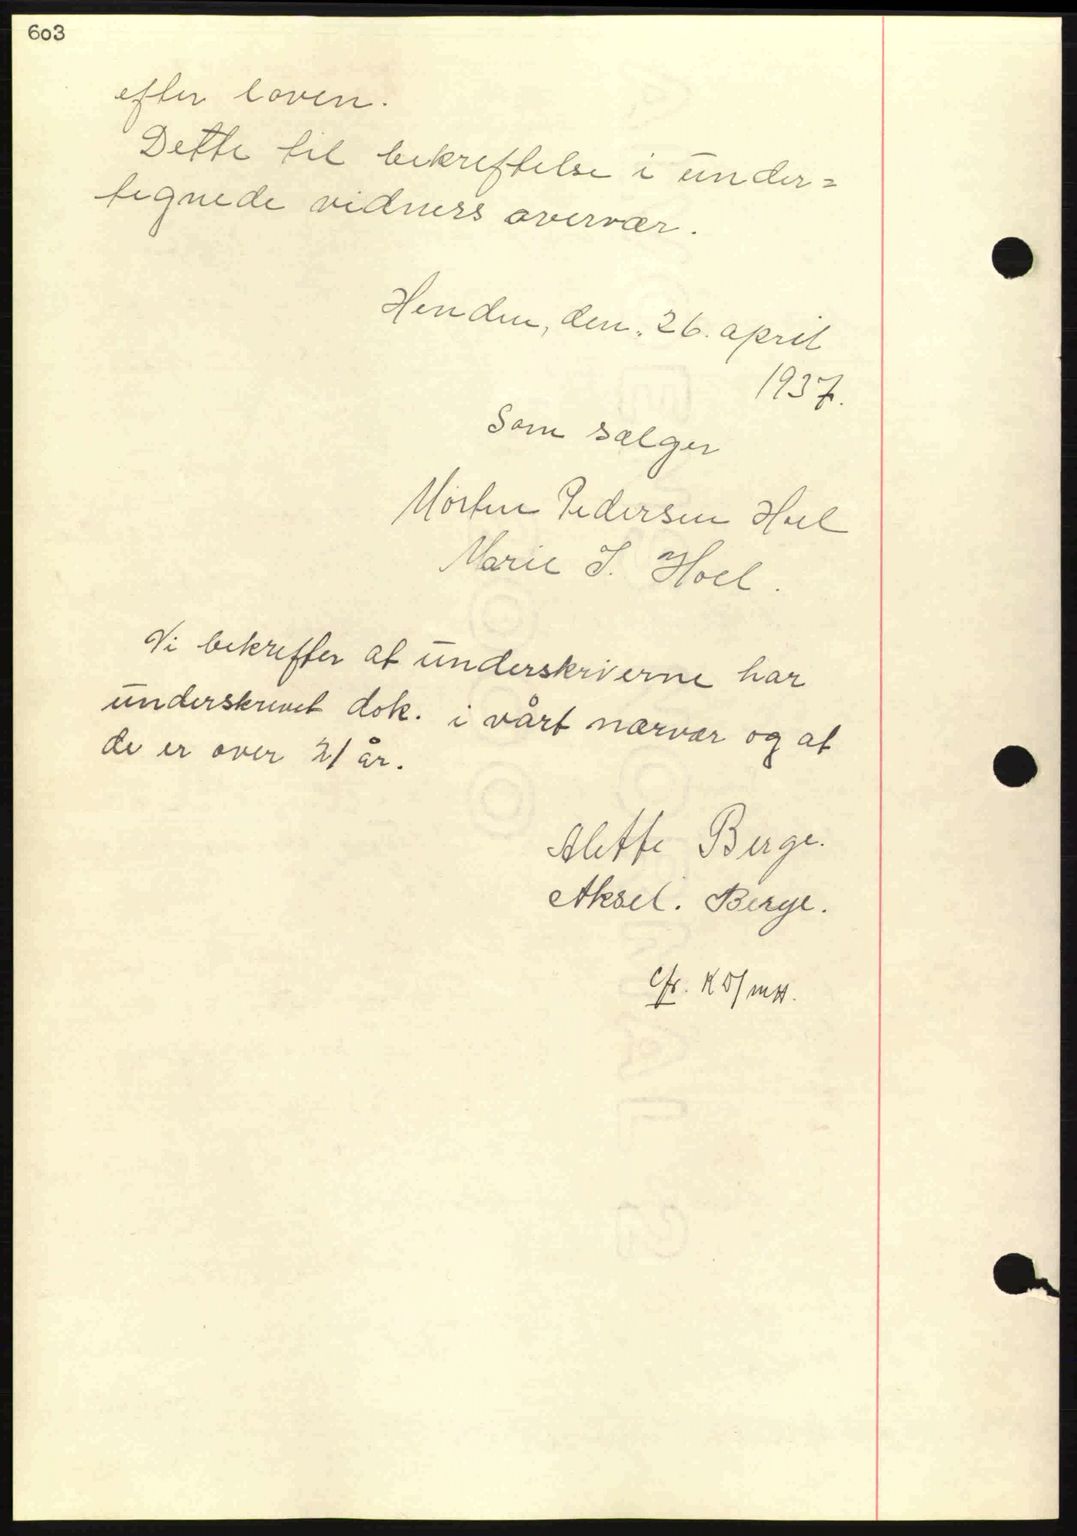 603
efter loven.
Dette til bekreftelse i under=
tegnede vidners overvær.
Hendin, den. 26. april
1937.
Som sælger
Morten Pedersen Hoel
Marie J. Hoel.
Vi bekrefter at underskriverne har
underskrevet dok. i vårt nærvær og at
de er over 21 år.
Alette Berge.
Aksel. Berge.
cfr. KD/MH.